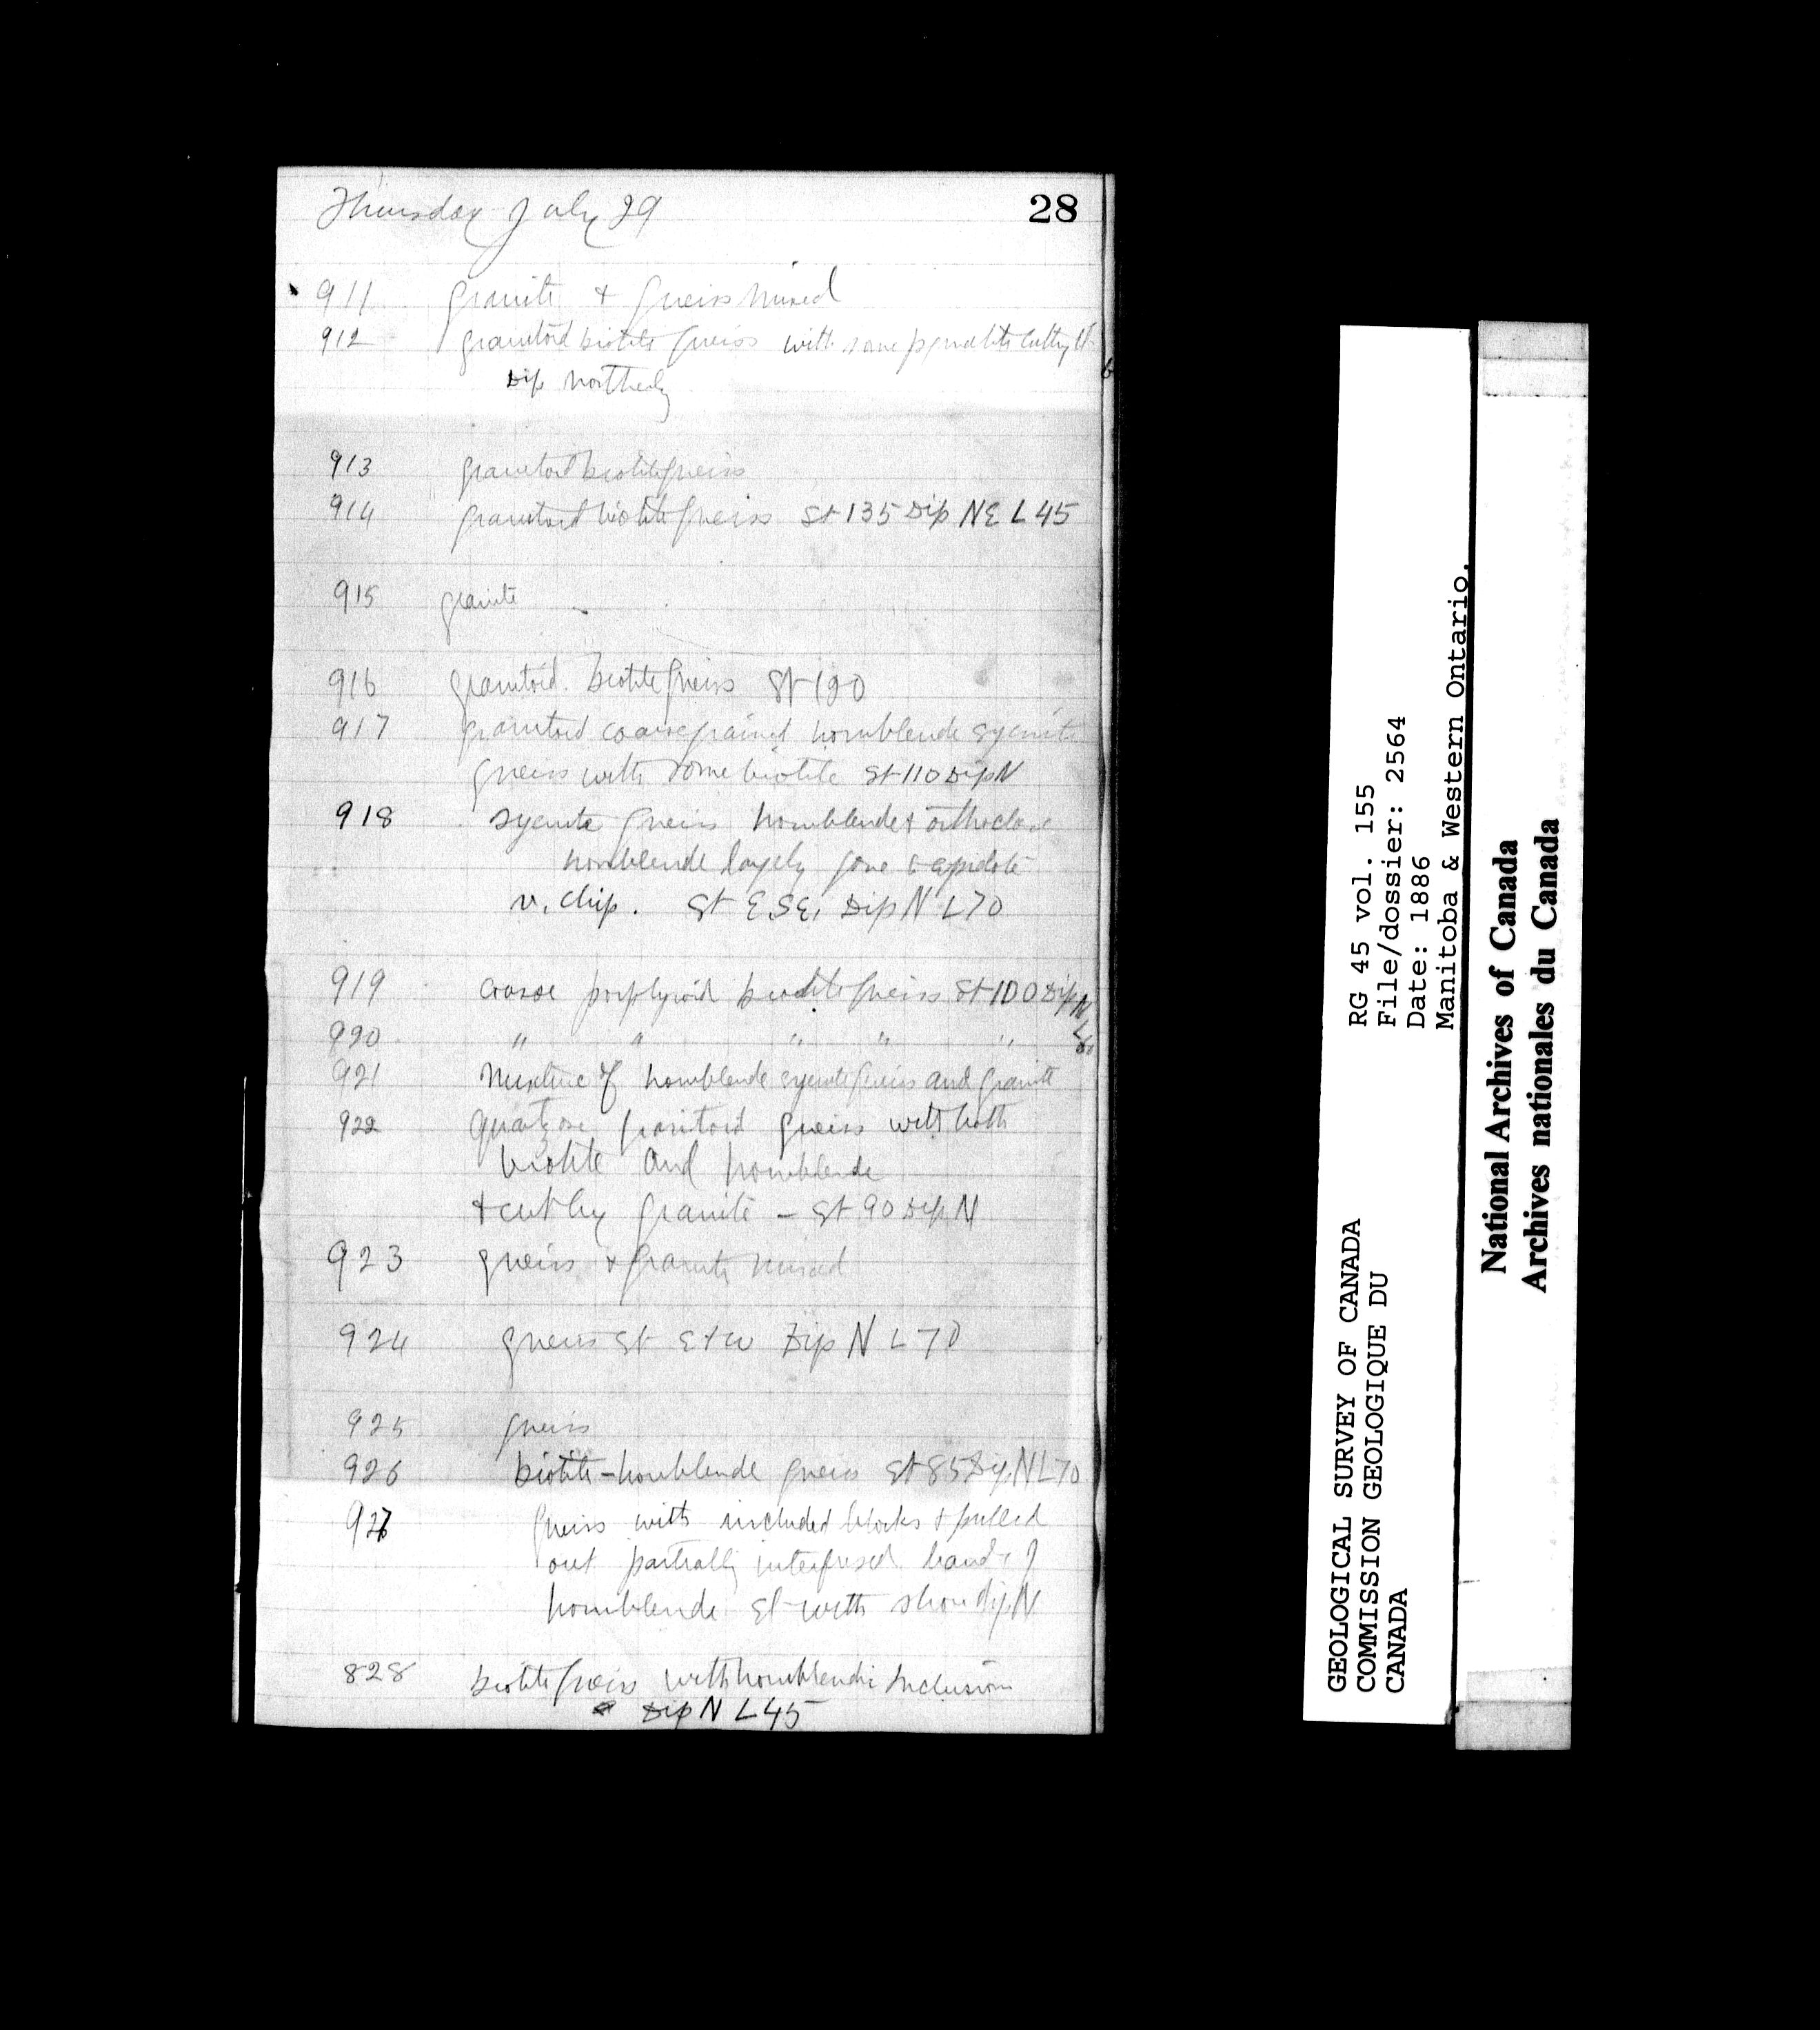 Thursday July 29
28
911 granite & gneiss mixed
912 granitoid biotite gneiss with some pegmatite cutting it
Dip northerly
913 granitoid biotite gneiss
914 granitoid biotite gneiss St 135 Dip NE L 45
915 granite
916 granitoid biotite gneiss St 120
917 granitoid coarse grained hornblende syenite
gneiss with some biotite St 110 Dip N
918 syenite gneiss hornblende & orthoclase
hornblende largely gone to epidote
v. chip. St E.SE, Dip N L 70
919 coarse porphyroid biotite gneiss St 100 Dip N
920 " " " " "
921 mixture of hornblende syenite gneiss and granite
922 quartzose granitoid gneiss with both
biotite and hornblende
& cut by granite - St 90 Dip N
923 gneiss & granite mixed
924 gneiss St E & W Dip N L 70
925 gneiss
926 biotite-hornblende gneiss St 85 Dip N L 70
927 gneiss with included blocks & pulled
out partially interfused bands of
hornblende St with shore dip N
828 biotite gneiss with hornblendic inclusions
Dip N L 45
RG 45 vol. 155
File/dossier: 2564
Date: 1886
Manitoba & Western Ontario.
GEOLOGICAL SURVEY OF CANADA
COMMISSION GEOLOGIQUE DU
CANADA
National Archives of Canada
Archives nationales du Canada